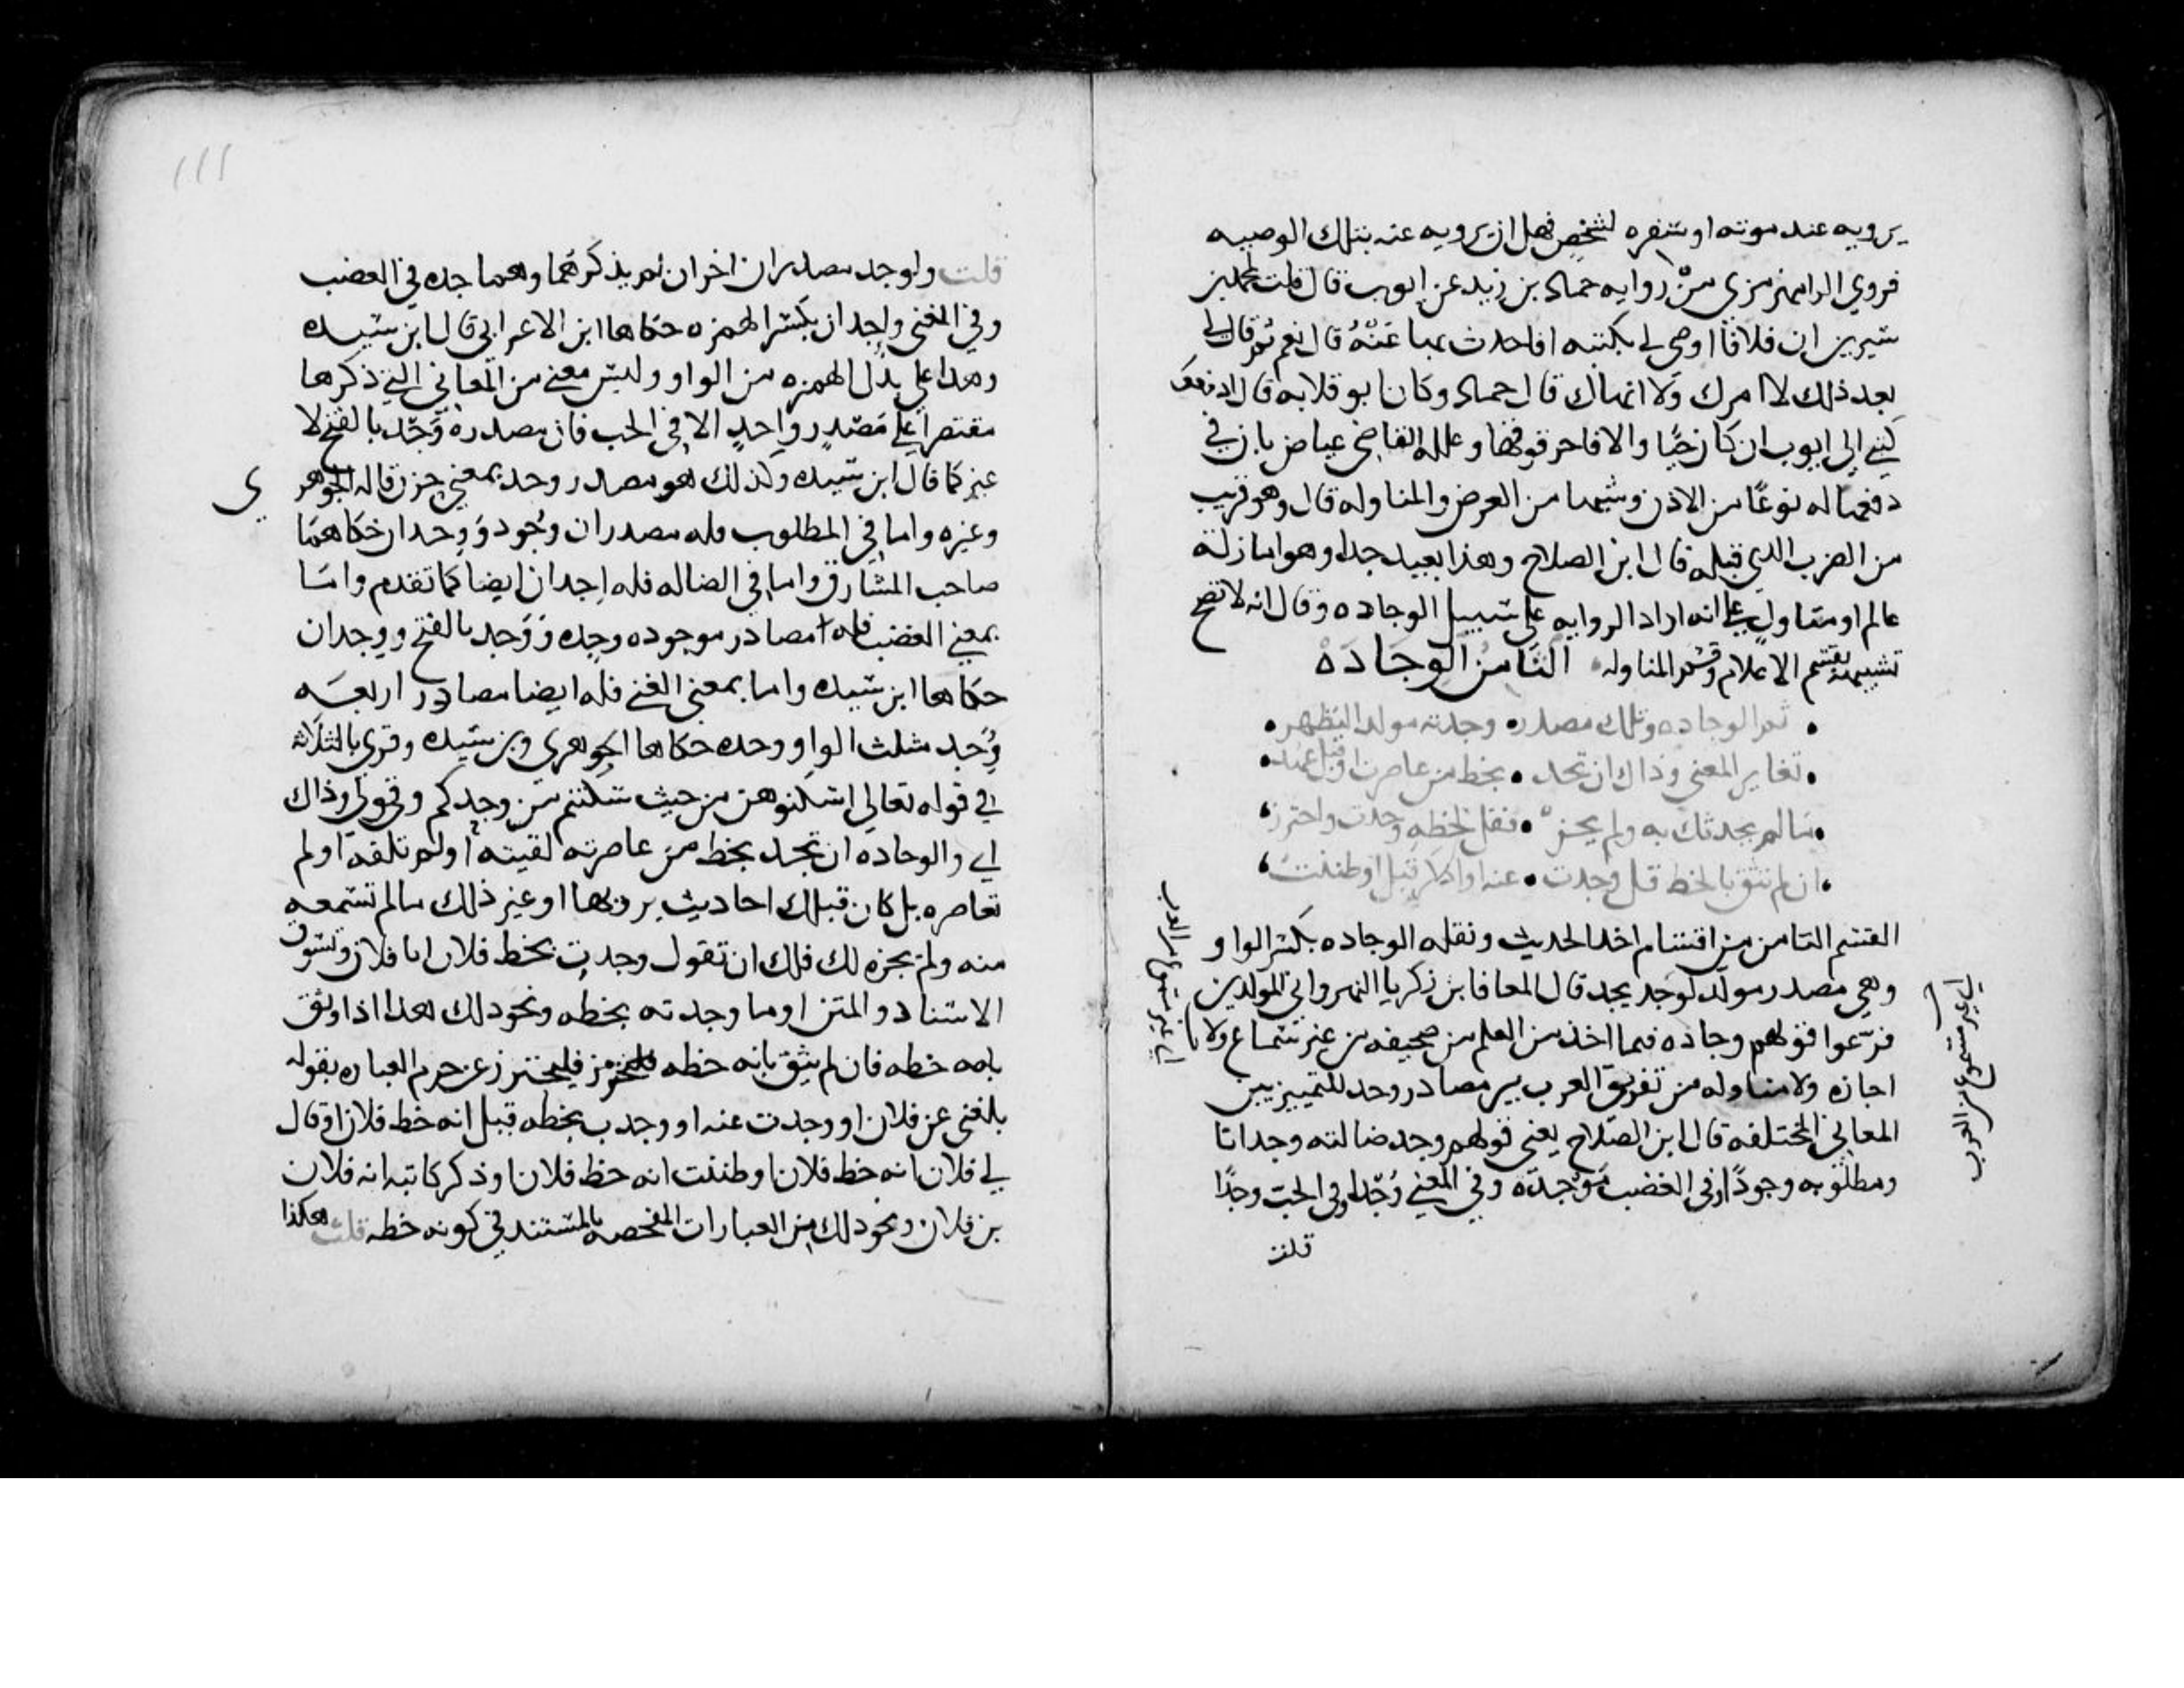 يرويه عند موته او سفره لشخص فهل ان يرويه عنه بتلك الوصيه
فروي الرامهرمزي من روايه حماد بن زيد عن ايوب قال قلت لمحمد بن
سيرين ان فلانا اوصى لي بكتبه افاحدث بها عنه قال نعم ثم قال لي
بعد ذلك لا امرك ولا انهاك قال حماد وكان ابو قلابه قال ادفعوا
كتبي الى ايوب ان كان حيا والا فاحرقوها وعلله القاضي عياض بان في
دفعها له نوعا من الاذن وشبها من العرض والمناوله قال وهو قريب
من الضرب الذي قبله قال ابن الصلاح وهذا بعيد جدا وهو اما زلة
عالم او متاول على انه اراد الروايه على سبيل الوجاده وقال انه لا تصح
تشبيهه بقسم الاعلام وقسم المناوله الثامن الوجادة
ثم الوجاده وتلك مصدر وجدته مولدا ليظهر
تغاير المعنى وذاك ان تجد بخط من عاصرت او قبل عهد
ما لم يحدثك به ولم يجز فقل بخطه وجدت واحترز
ان لم تثق بالخط قل وجدت عنه او اذكر قيل او ظننت
القسم الثامن من اقسام اخذ الحديث ونقله الوجاده بكسر الواو
وهي مصدر مولد لوجد يجد قال المعافا بن زكريا النهرواني المولدين
فرعوا قولهم وجاده فيما اخذ من العلم من صحيفه من غير سماع ولا
اجازه ولا مناوله من تفريق العرب بين مصادر وجد للتمييز بين
المعاني المختلفه قال ابن الصلاح يعني قولهم وجد ضالته وجدانا
ومطلوبه وجودا وفي الغضب موجدة وفي الغنى وجدا وفي الحب وجدا
قلت
اي غير مسموع من العرب
اي غير مسموع من العرب
١١١
قلت ولوجد مصدران اخران لم يذكرهما وهما جده في الغضب
وفي الغنى واجدان بكسر الهمزه حكاها ابن الاعرابي قال ابن سيده
وهذا على بدل الهمزه من الواو وليس معنى من المعاني التي ذكرها
مقتصرا على مصدر واحد الا في الحب فان مصدره وجد بالفتح لا
غير كما قال ابن سيده وكذلك هو مصدر وجد بمعنى حزن قاله الجوهر
ي
وغيره واما في المطلوب فله مصدران وجود و وجدان حكاهما
صاحب المشارق واما في الضاله فله اجدان ايضا كما تقدم واما
بمعنى الغضب فله مصادر موجوده وجده و وجد بالفتح ووجدان
حكاها ابن سيده واما بمعنى الغنى فله ايضا مصادر اربعه
وجد مثلث الواو وجده حكاها الجوهري وبن سيده وقري بالثلاث
في قوله تعالى اسكنوهن من حيث سكنتم من وجدكم وقولي وذاك
اي والوجاده ان تجد بخط من عاصرته لقيته او لم تلقه او لم
تعاصره بل كان قبلك احاديث يرويها او غير ذلك ما لم تسمعه
منه ولم يجزه لك فلك ان تقول وجدت بخط فلان انا فلان وتسوق
الاسناد والمتن او ما وجدته بخطه ونحو ذلك هذا اذا وثق
بانه خطه فان لم يثق بانه خطه فليحترز عن جزم العباره بقوله
بلغني عن فلان او وجدت عنه او وجدت بخطه قيل انه خط فلان او قال
لي فلان انه خط فلان او ظننت انه خط فلان او ذكر كاتبه انه فلان
بن فلان ونحو ذلك من العبارات المفصحه بالمستند في كونه خطه قلت هكذا